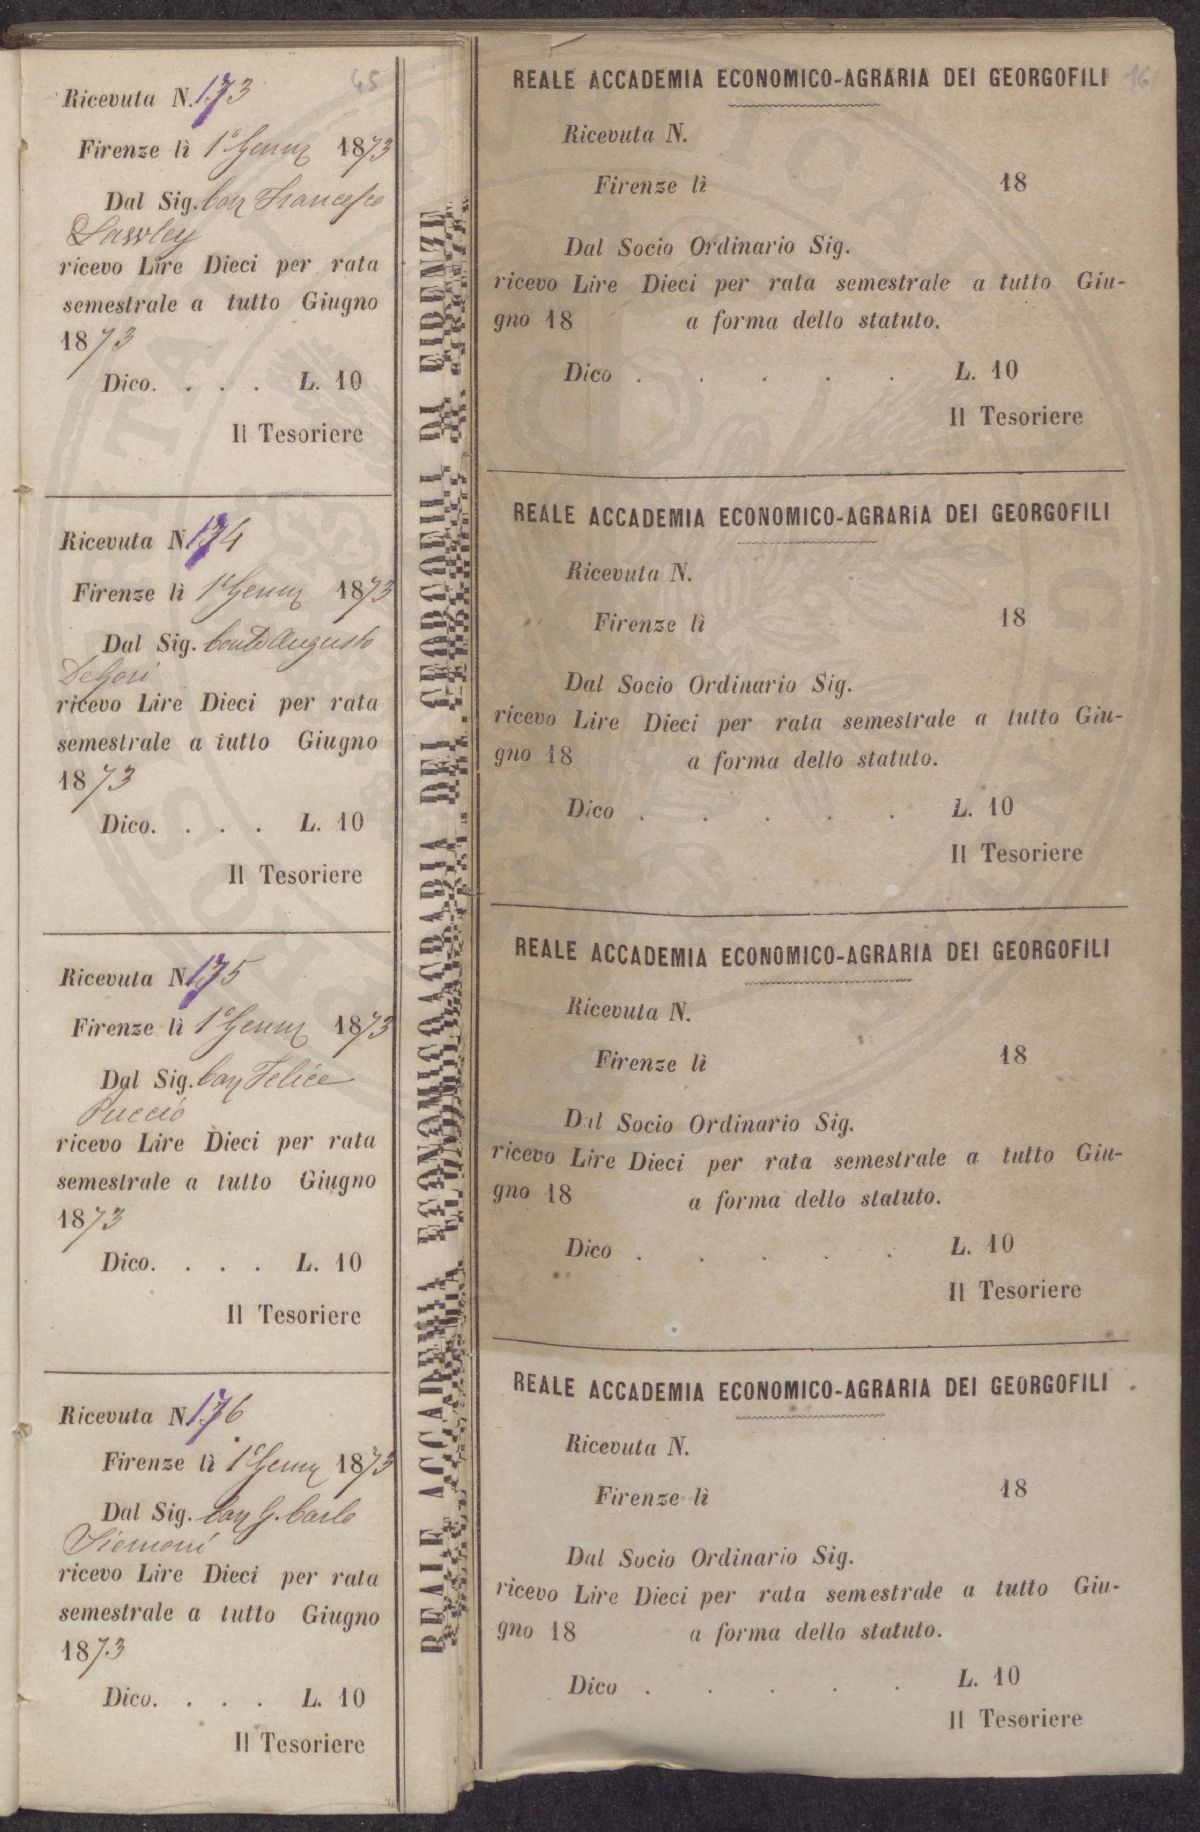 45
Ricevuta N. 173
Firenze lì 1° Genn 1873
Dal Sig. Cav Francesco
Sawley
ricevo Lire Dieci per rata
semestrale a tutto Giugno
1873
Dico. . . . L. 10
Il Tesoriere
Ricevuta N. 174
Firenze lì 1° Genn 1873
Dal Sig. Conte Augusto
DeGori
ricevo Lire Dieci per rata
semestrale a tutto Giugno
1873
Dico. . . . L. 10
Il Tesoriere
Ricevuta N. 175
Firenze lì 1° Genn 1873
Dal Sig. Cav Felice
Puccio
ricevo Lire Dieci per rata
semestrale a tutto Giugno
1873
Dico. . . . L. 10
Il Tesoriere
Ricevuta N. 176
Firenze lì 1° Genn 1873
Dal Sig. Cav G. Carlo
Siemoni
ricevo Lire Dieci per rata
semestrale a tutto Giugno
1873
Dico. . . . L. 10
Il Tesoriere
REALE ACCADEMIA ECONOMICO AGRARIA DEI GEORGOFILI DI FIRENZE
REALE ACCADEMIA ECONOMICO-AGRARIA DEI GEORGOFILI
Ricevuta N.
Firenze lì 18
Dal Socio Ordinario Sig.
ricevo Lire Dieci per rata semestrale a tutto Giu-
gno 18 a forma dello statuto.
Dico . . . . . L. 10
Il Tesoriere
REALE ACCADEMIA ECONOMICO-AGRARIA DEI GEORGOFILI
Ricevuta N.
Firenze lì 18
Dal Socio Ordinario Sig.
ricevo Lire Dieci per rata semestrale a tutto Giu-
gno 18 a forma dello statuto.
Dico . . . . . L. 10
Il Tesoriere
REALE ACCADEMIA ECONOMICO-AGRARIA DEI GEORGOFILI
Ricevuta N.
Firenze lì 18
Dal Socio Ordinario Sig.
ricevo Lire Dieci per rata semestrale a tutto Giu-
gno 18 a forma dello statuto.
Dico . . . . . L. 10
Il Tesoriere
REALE ACCADEMIA ECONOMICO-AGRARIA DEI GEORGOFILI
Ricevuta N.
Firenze lì 18
Dal Socio Ordinario Sig.
ricevo Lire Dieci per rata semestrale a tutto Giu-
gno 18 a forma dello statuto.
Dico . . . . . L. 10
Il Tesoriere